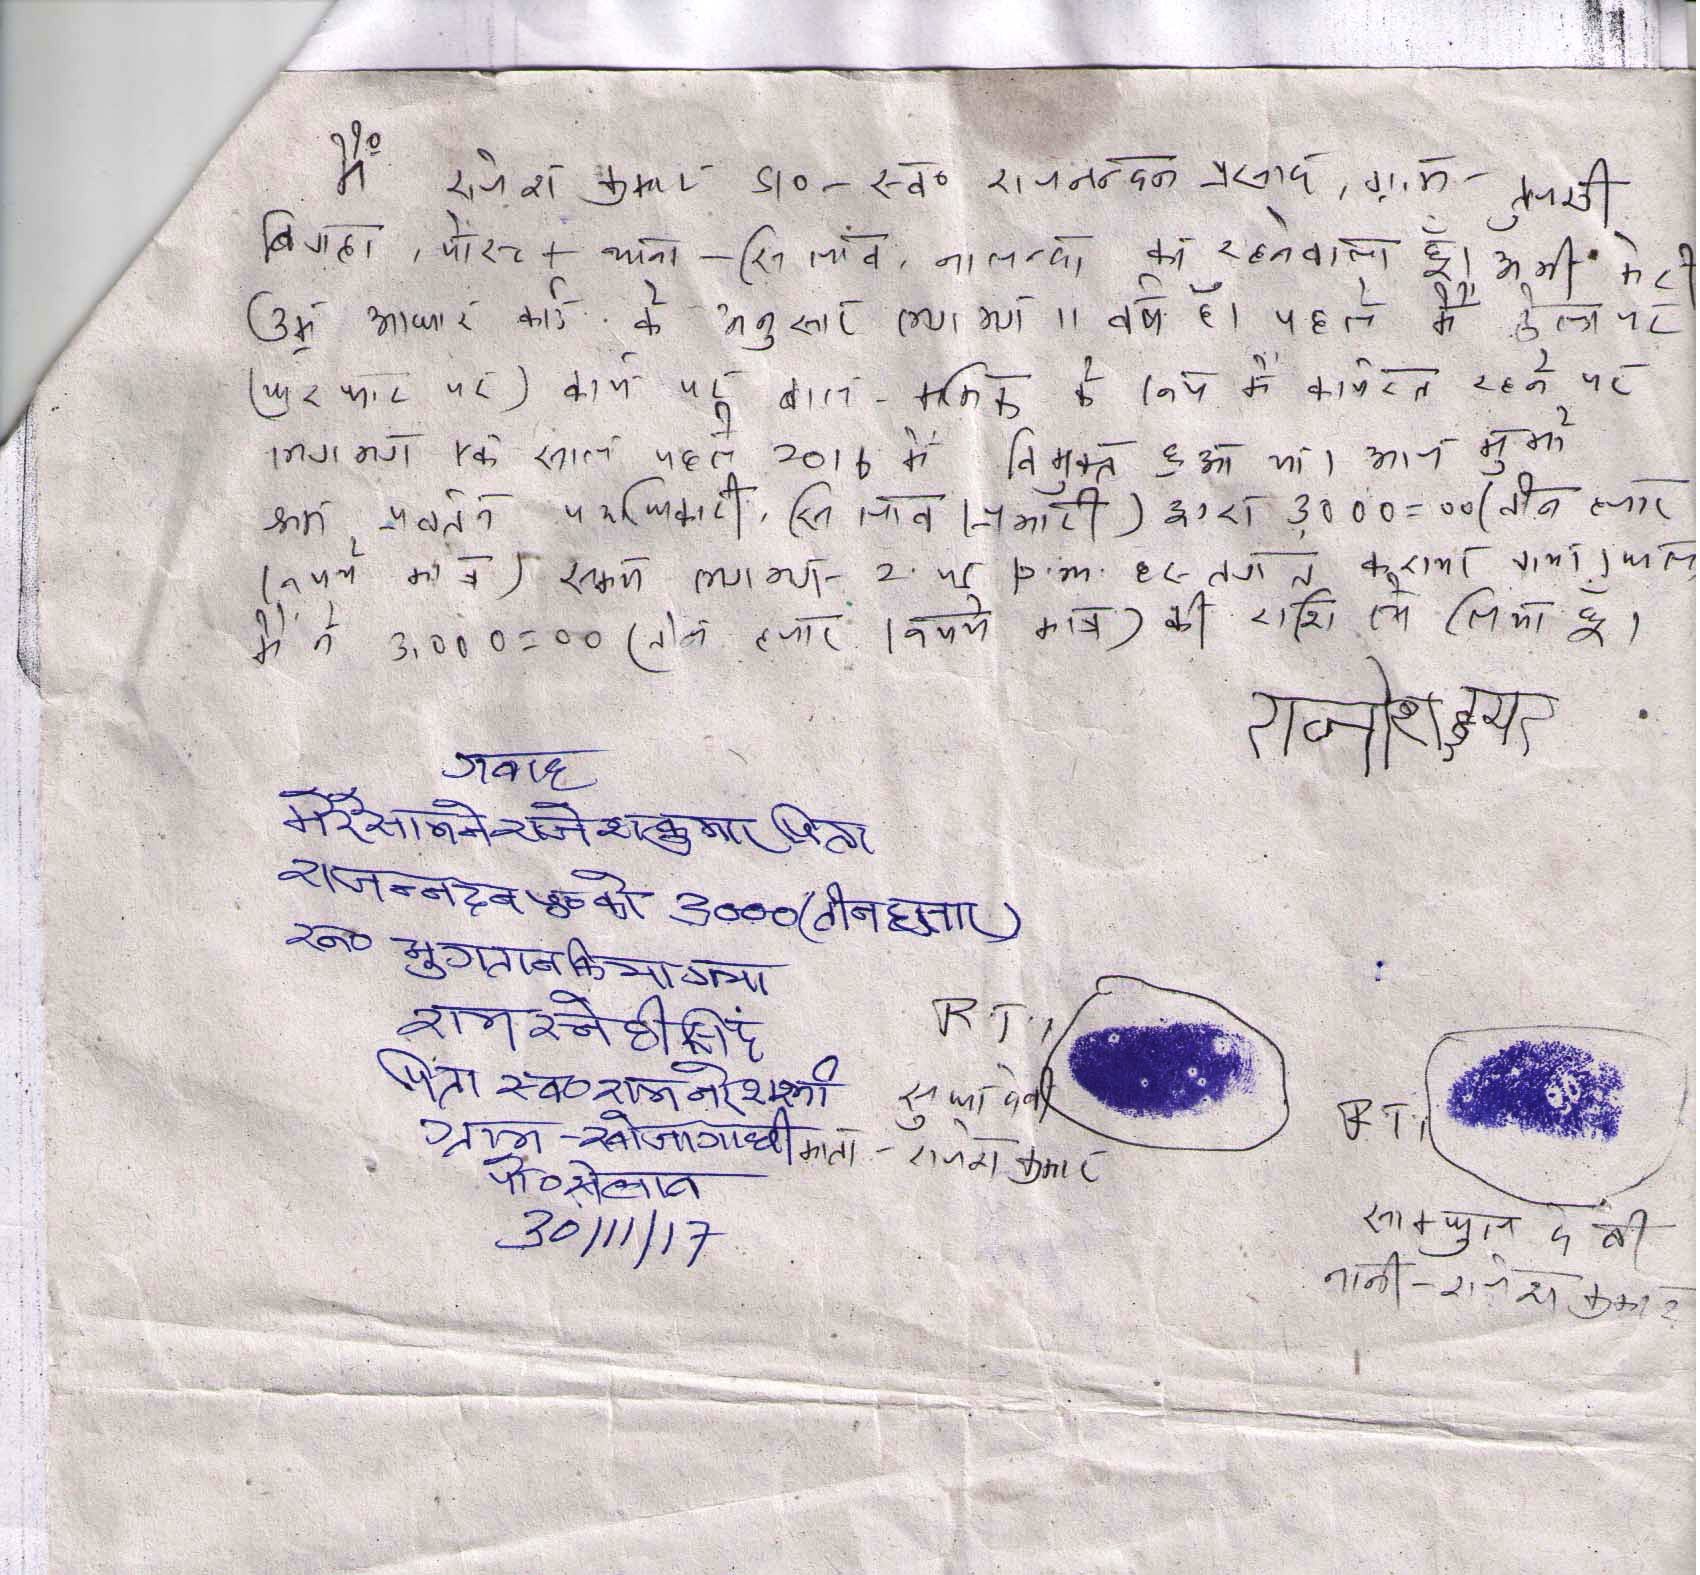 मैं राजेश कुमार S/o - स्व० राजनन्दन प्रसाद, ग्राम - तुलसी
बिगहा, पोस्ट + थाना - सिलाव, नालन्दा का रहनेवाला हूँ। अभी मेरी
उम्र आधार कार्ड के अनुसार लगभग 11 वर्ष है। पहले मैं ठेला पर
पर) कार्य पर बाल श्रमिक के रूप में कार्यरत रहने पर
लगभग एक साल पहले 2016 में विमुक्त हुआ था। आज मुझे
श्रम प्रवर्तन पदाधिकारी, सिलाव (प्रभारी) द्वारा 3,000=00 (तीन हजार
रूपये मात्र) समय लगभग - 2. p.m. हस्तगत कराया गया।
मैं ने 3,000=00 (तीन हजार रूपये मात्र) की राशि ले लिया हूँ।
राजेश कुमार
गवाह
मेरे सामने राजेश कुमार पिता
राजनन्दन प्र० को 3000 (तीन हजार)
रू० भुगतान किया गया
राम स्नेही सिंह
पिता स्व० राम नरेश शर्मा
ग्राम - खोजागाछी
पो० सिलाव
30/11/17
R.T.
सुधा देवी
माता - राजेश कुमार
R.T.
देवी
नानी - राजेश कुमार